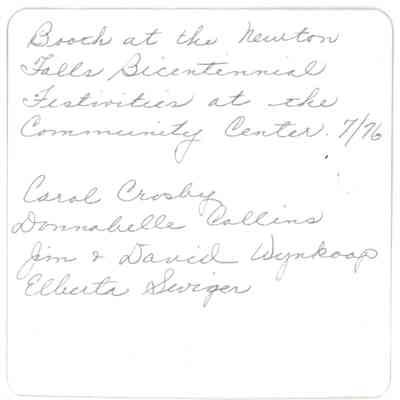 Booth at the Newton
Falls Bicentennial
Festivities at the
Community Center. 7/76
Carol Crosby
Donnabelle Collins
Jim & David Wynkoop
Elberta Swiger